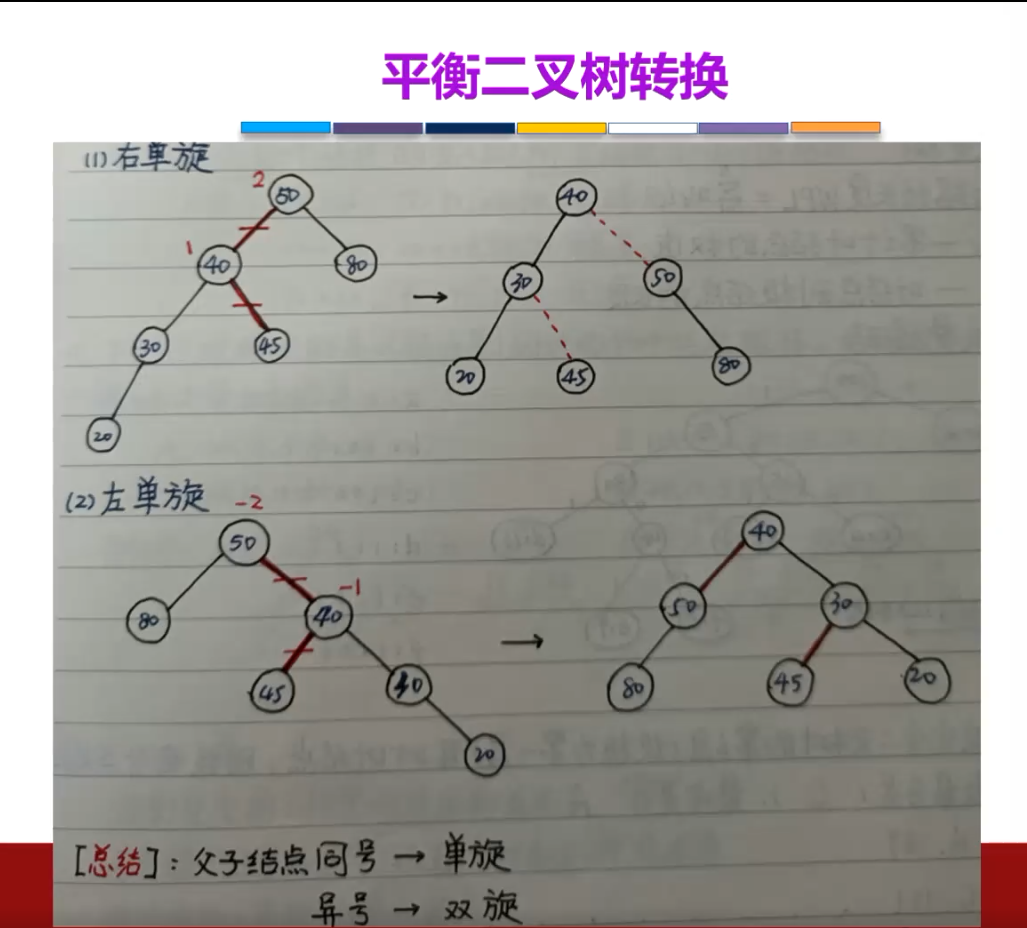 平衡二叉树转换
(1)右单旋
2
50
1
40
80
30
45
20
→
40
30
50
20
45
80
(2)左单旋
-2
50
-1
80
40
45
40
20
→
40
50
30
80
45
20
[总结]：父子结点同号 → 单旋
异号 → 双旋